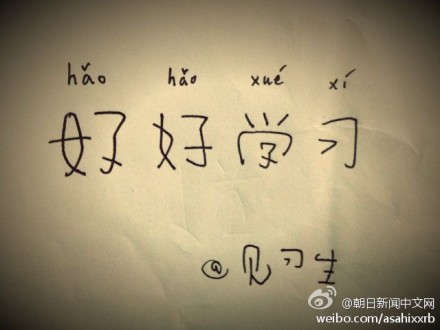 hǎo hǎo xué xí
好好学习
@见习生
@朝日新闻中文网
weibo.com/asahixxrb